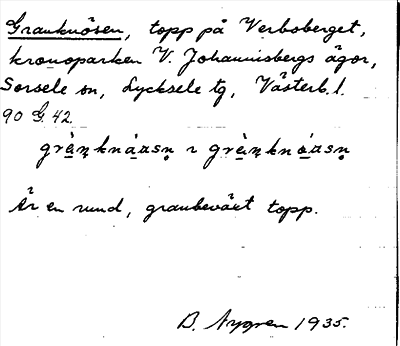 Grauknösen, topp på Verboberget,
kronoparken V. Johannisbergs ägor,
Sorsele sn, Lycksele tg, Västerb. l.
90 G. 42.
Är en rund, granbeväxt topp.
B. Nygren 1935.